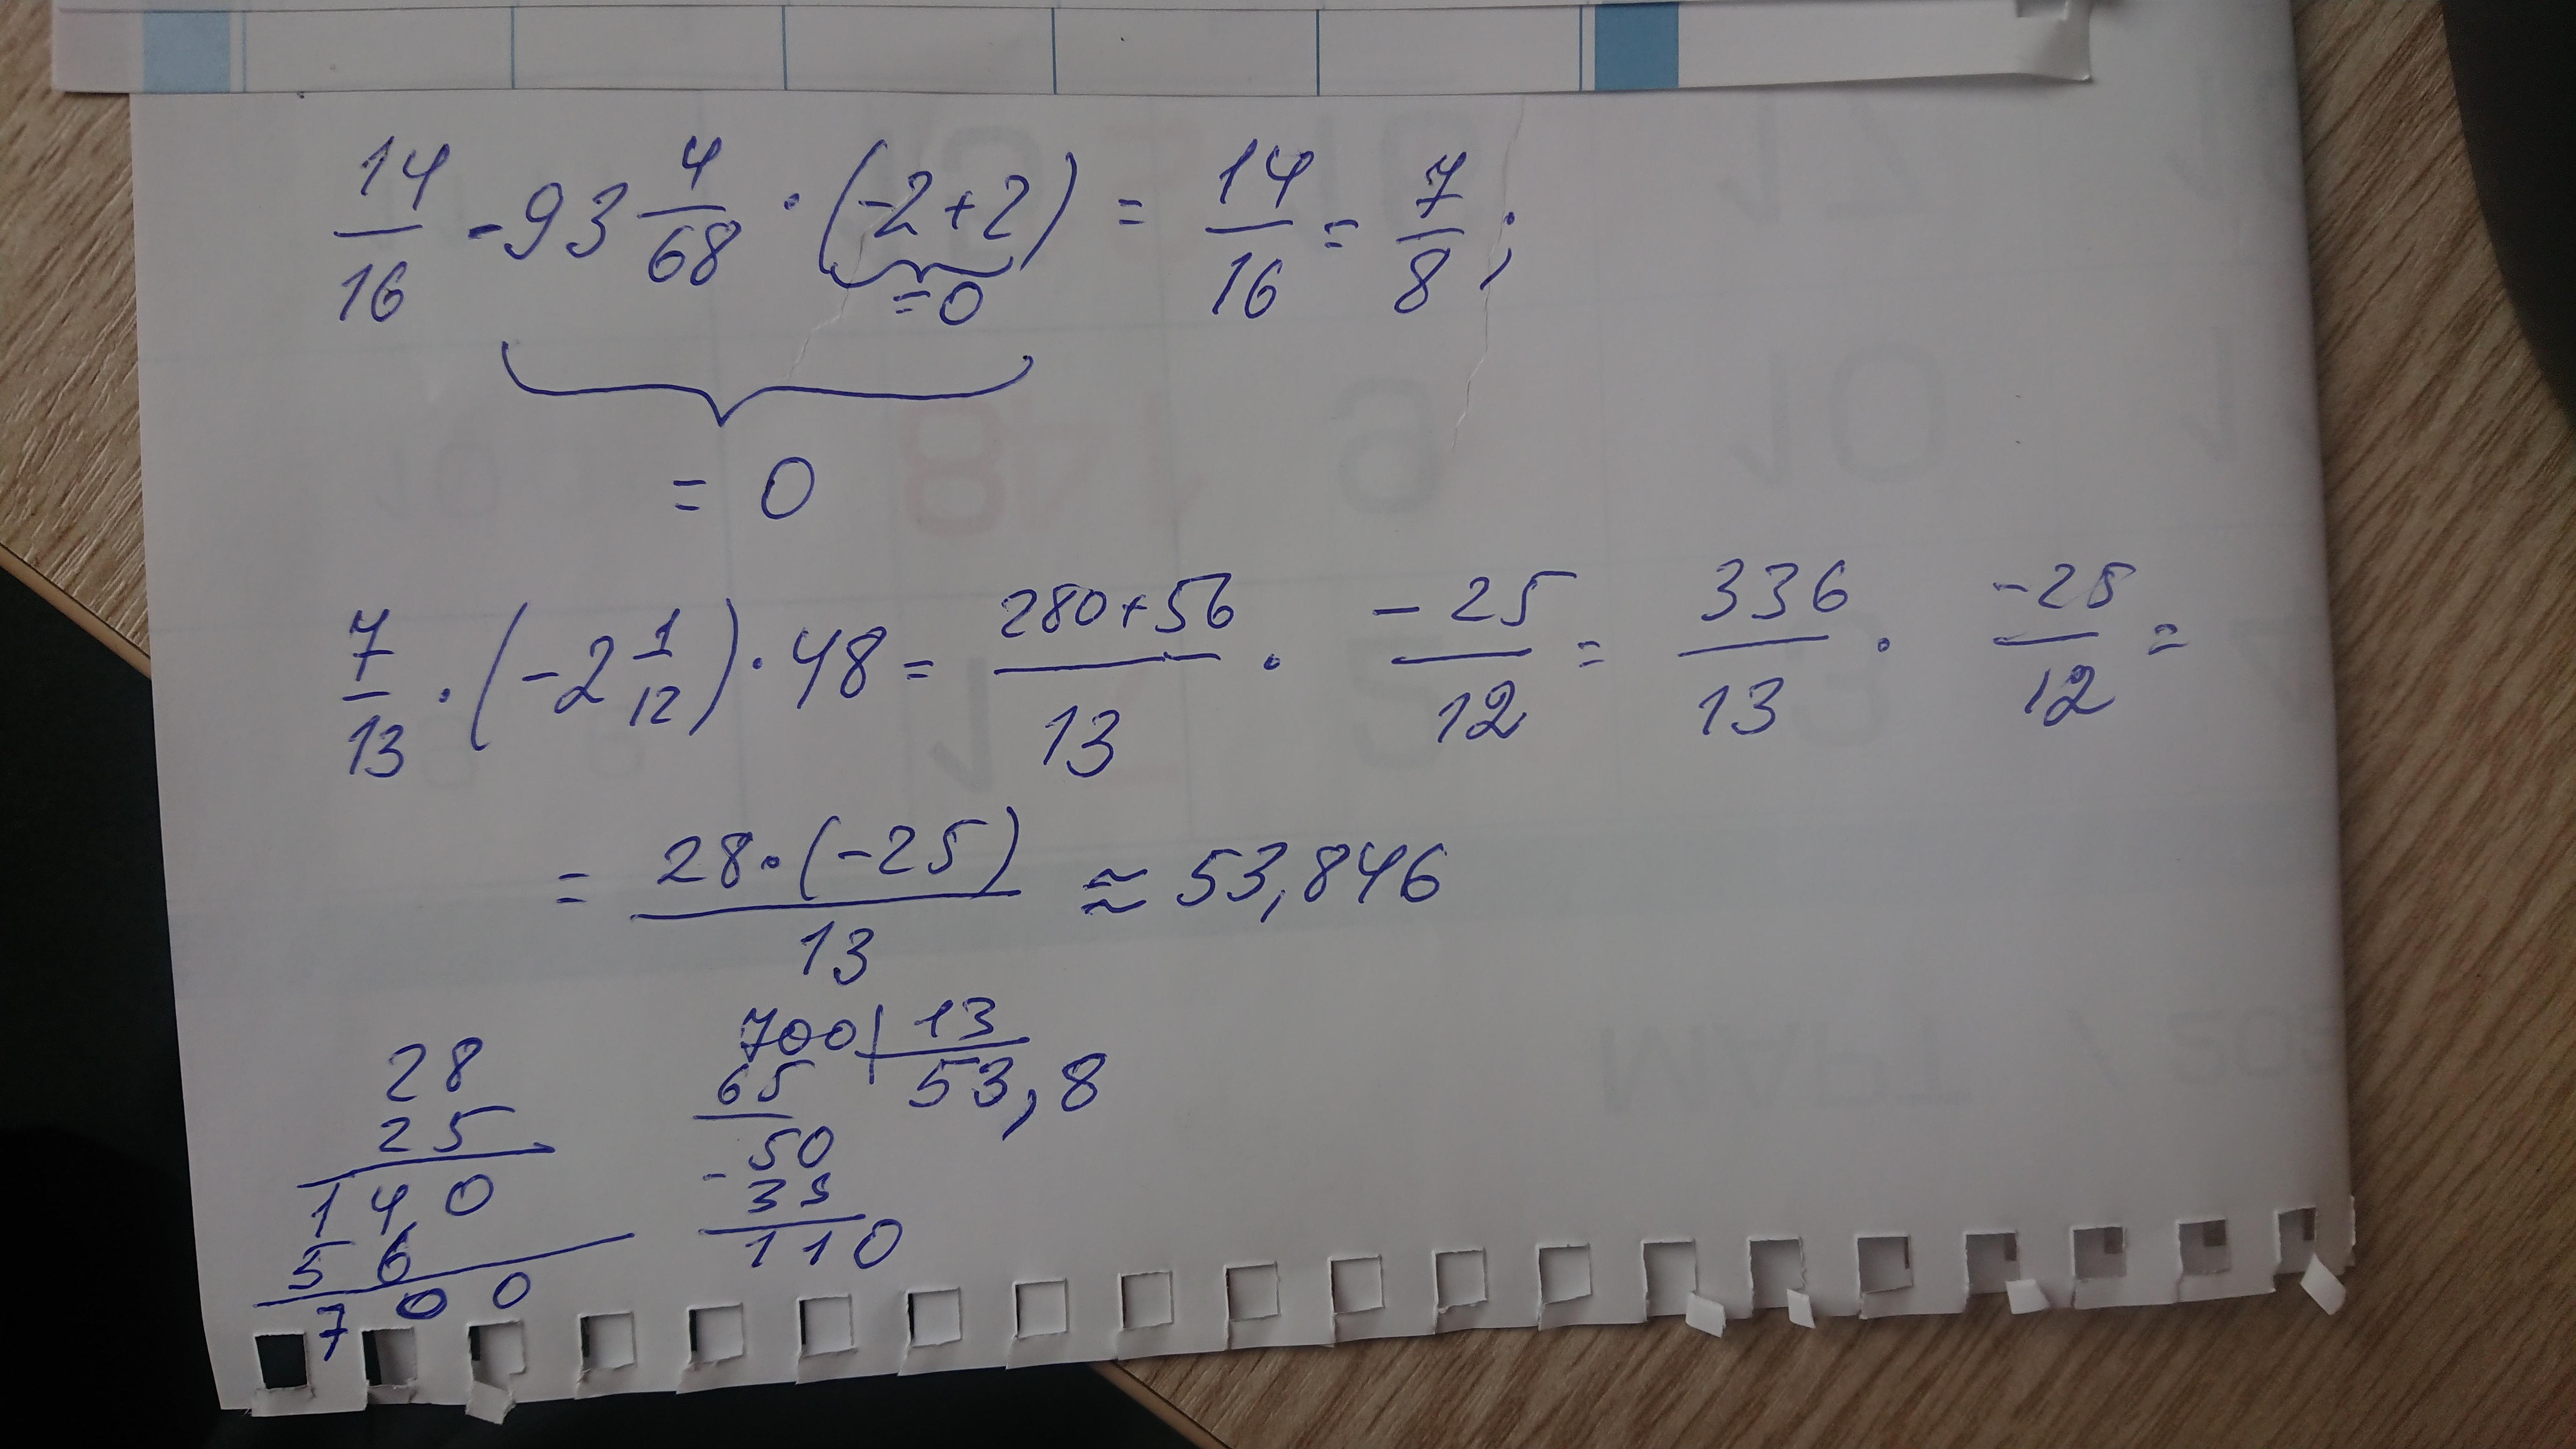 14/16 - 93 4/68 · (-2+2) = 14/16 = 7/8 ;
=0
= 0
7/13 · (-2 1/12) · 48 = 280+56/13 · -25/12 = 336/13 · -25/12 =
= 28·(-25)/13 ≈ 53,846
28
25
140
56
700
700 | 13
65 53,8
50
- 39
110